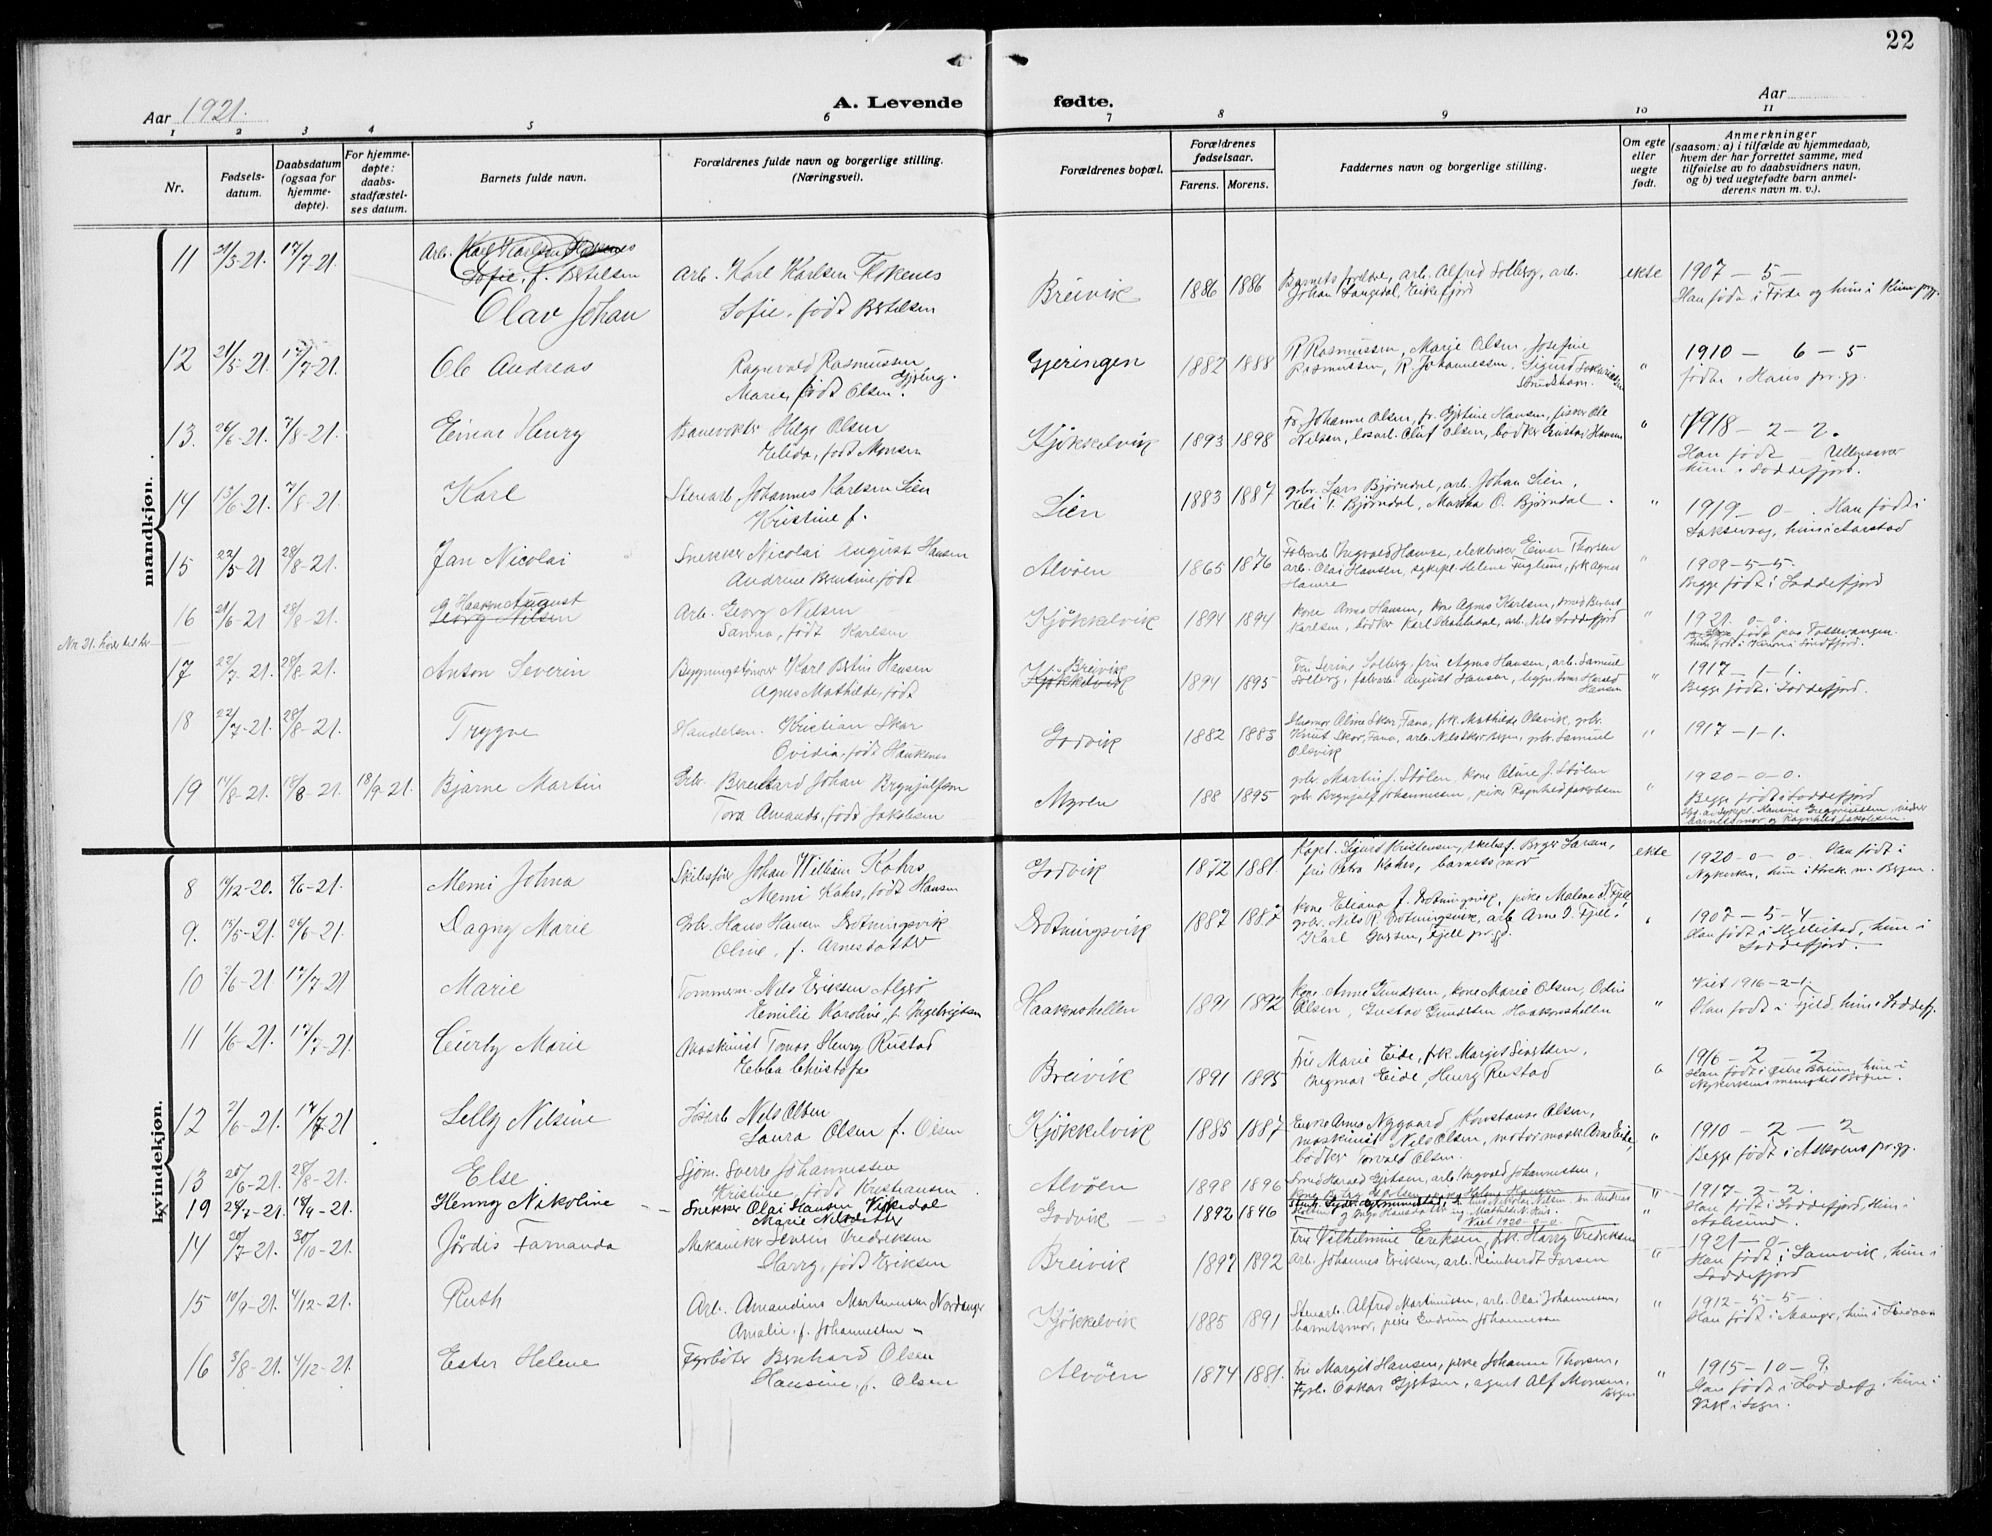 22
Aar 1921.
A. Levende fødte.
Aar
1 2 3 4 5 6 7 8 9 10 11
Nr.
Fødsels-
datum.
Daabsdatum
(ogsaa for
hjemme-
døpte).
For hjemme-
døpte:
daabs-
stadfæstel-
ses datum.
Barnets fulde navn.
Forældrenes fulde navn og borgerlige stilling.
(Næringsvei).
Forældrenes bopæl.
Forældrenes
fødselsaar.
Farens. Morens.
Faddernes navn og borgerlige stilling.
Om egte
eller
uegte
født.
Anmerkninger
(saasom: a) i tilfælde av hjemmedaab,
hvem der har forrettet samme, med
tilføielse av to daabsvidners navn,
og b) ved uegtefødte barn anmel-
derens navn m. v.).
mandkjøn.
11 17/7-21 Arb. Karl Karlsen
Sofie, f. Bertilsen
Olav Johan
Arb. Karl Karlsen Flokenes
Sofie, født Bertilsen
Breivik 1886 1886
Barnets foreldre, arb. Alfred Solberg, arb.
Johan Langedal, Eikefjord
ekte 1907 — 5 —
Han født i Førde og hun i Kinn prgj.
12 21/5-21 17/7-21. Ole Andreas
Ragnvald Rasmussen
Marie, født Olsen.
Gjeringen 1882 1888
R Rasmussen, Marie Olsen, Josefine
Rasmussen, R. Johannessen, Sigurd
" 1910 — 6 — 5
født i Haus pr.gj.
13. 7/8-21. Einar Henry
Banevokter Helge Olsen
Elida, født Monsen
Kjøkkelvik 1893 1898
Fr. Johanne Olsen, fr. Gjertine Hansen, fisker Ole
Nilsen, løsarb. Oluf Olsen, bødker Gustav Hansen
" 1918 — 2 — 2.
Han født Ullensaker
hun i Loddefjord.
14 13/6-21. 7/8-21. Karl
Stenarb. Johannes Karlsen Lien
Kristine f.
Lien 1883 1887
gbr. Lars Bjørndal, arb. Johan Lien,
Heli T. Bjørndal, Martha O. Bjørndal.
" 1919 — 0 — . Han født i
hun i Aarstad
15 22/5-21 28/8-21. Jan Nicolai
Snekker Nicolai August Hansen
Andrine Berntine, født
Alvøen 1865 1876
Fabrarb Ingvald Hamre, elektriker Einar Thorsen
arb. Olai Hansen, sykepl. Helene Fuglum, frk Agnes
Hamre
" 1909-5-5.
Begge født i Loddefjord
16 21/6-21 28/8-21. Haakon August
Georg Nilsen
Arb. Georg Nilsen
Sanna, født Karlsen
Kjøkkelvik 1894 1894
kone Anna Hansen, kone Agnes Karlsen, smed Bernt
Karlsen, bødker Karl, arb. Nils Loddefjord
" 1921. 0-0.
Nr. 21. hører til her
17 22/7-21. 28/8-21. Anton Severin
Bygningstømrer Karl Bertin Hansen
Agnes Mathilde, født
Breivik
Kjøkkelvik
1894 1895
Fru Serine Solberg, fru Agnes Hansen, arb. Samuel
Solberg, fabrarb. August Hansen, Harald
Hansen
" 1917 — 1 — 1.
Begge født i Loddefjord.
18 22/7-21. 28/8-21. Trygve
Handelsm. Kristian Skar
Ovidia, født Haukenes
Godvik 1882 1883
Husmor Oline Skar, Fana, frk. Mathilde Olsvik, gbr.
Knut Skar, Fana, arb. Nils, gbr. Samuel
Olsvik
" 1917 — 1 — 1.
19 14/8-21. 18/8-21. 18/9-21. Bjarne Martin
Gbr. Bernhard Johan Brynjulfsen
Tora Amanda, født Jakobsen
Myren 188 1895
gbr. Martin J. Stølen, kone Oline J. Stølen
gbr Brynjulf Johannessen, pike Ragnhild Jakobsen
" 1920-0-0.
Begge født i Loddefjord
barnets mor og Ragnhild Jakobsen.
kvindekjøn.
8 Memi Johna
Skibsfør Johan William Kahrs
Memi Kahrs, født Hansen
Godvik 1872 1881.
Kapt. Sigurd Kristensen, skibsf. Birger Larsen,
fru Petra Kahrs, barnets mor
ekte 1920-0-0. Han født i
Nykirken, hun i Bergen.
9. 15/5-21. 26/6-21. Dagny Marie
Gbr. Hans Hansen Drotningsvik
Oline, f. Arnesdatter
Drotningsvik 1887 1887
kone Eliana J. Drotningsvik, pike Malene I. Fjell
gbr. Nils R Drotningsvik, arb Arne I. Fjell i
Karl Fjell pr.gj.
" 1907 — 5 — 4
Han født i Hyllestad, hun i
Loddefjord.
10 17/7-21 Marie
Tømmerm. Nils Eriksen Algrø
Emilie Karoline, f. Ingebrigtsen
Haakonshellen 1891 1892
kone Anne Gundersen, kone Marie Olsen, Odin
Olsen, Gustav Gundersen Haakonshellen
" Viet 1916-2-1.
Han født i Fjeld, hun i Loddefj.
11 1/6-21. 17/7-21. Marie
Maskinist Tomas Henry Rustad
Ebba
Breivik 1891 1895
Fru Marie Eide, frk. Margit,
Ingmar Eide, Henry Rustad
1916 — 2 2
12 2/6-21. 17/7 21 Selly Nilsine
Løsarb Nils Olsen
Laura Olsen f. Olsen
Kjøkkelvik 1885 1887
Enke Anna Nygaard Konstanse Olsen,
maskinist Nils Olsen, motormask. Arne Eide,
bødker Torvald Olsen.
" 1910 — 2 — 2
Begge født i Askøens pr.gj.
13 28/8-21. Else
Sjøm. Sverre Johannessen
Kristine, født Kristiansen
Alvøen 1898 1896
arb. Ingvald Johannessen,
" 1917 — 2 — 2
Han født i Loddefjord, hun i
Aalesund.
19 18/9-21. Henny Nikoline
Snekker Olai Hansen Vikedal
Marie Nilsdatter
Godvik 1892 1896
Viet 1920-0-0.
14 30/10-21. Jördis Fernanda
Mekaniker Severin Fredriksen
Harry, født Eriksen
Breivik 1892 1892
Fru Vilhelmine Eriksen, frk. Harry Fredriksen
Arb. Johannes Eriksen, arb. Reinhardt Larsen
" 1921 — 0 —
Han født i Samvik, hun i
Loddefjord
15 10/9-21. 4/12-21. Ruth
Arb. Amandius Martinussen Nordanger
Amalie, f. Johannessen
Kjøkkelvik 1885 1891
Stenarb. Alfred Martinussen, arb. Olai Johannessen,
barnets mor, pike Gudrun Johannessen
" 1912-5-5-
Han født i Manger,
16 3/8-21. 4/12-21. Ester Helene
Fyrbøter Bernhard Olsen
Hansine, f. Olsen
Alvøen 1874 1881.
Fru Margit Hansen, pike Johanne Thorsen,
Fyrb. Oskar Gjertsen, agent Alf Monsen,
Bergen
" 1915-10-9.
Han født i Loddefj., hun i
Vik i Sogn.